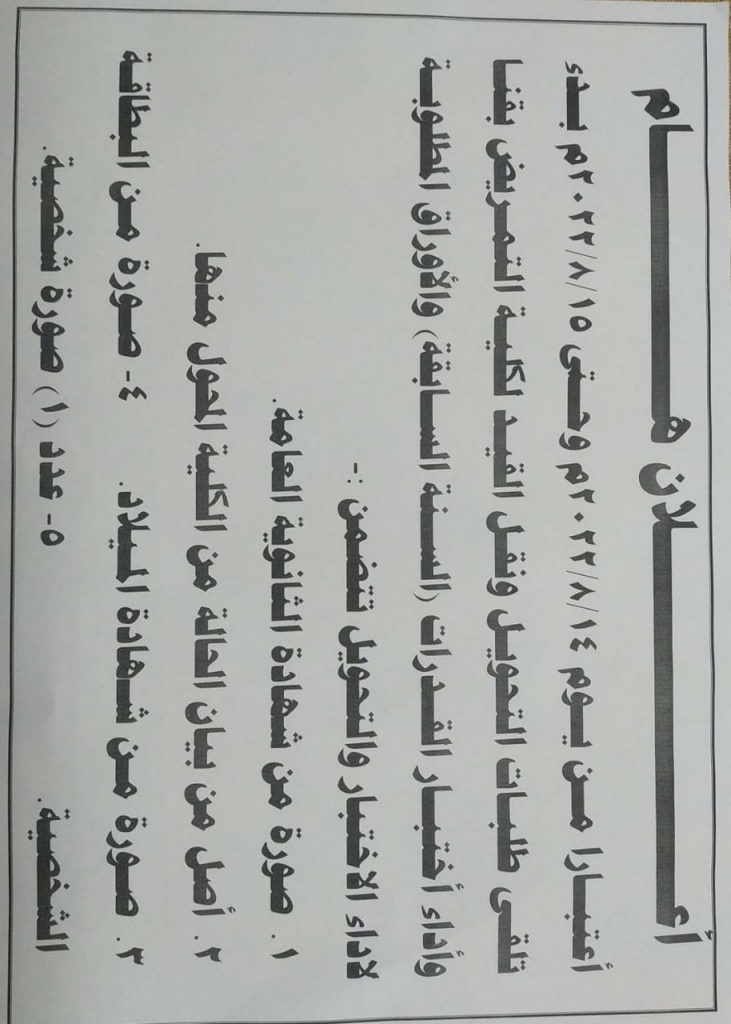 أعـــلان هـــام
أعتبارا من يوم ٢٠٢٢/٨/١٤م وحتى ٢٠٢٢/٨/١٥م بدء
تلقى طلبات التحويل ونقل القيد لكلية التمريض بقنا
وأداء أختبار القدرات (السنة السابقة) والأوراق المطلوبة
لاداء الاختبار والتحويل تتضمن :-
١. صورة من شهادة الثانوية العامة.
٢. أصل من بيان الحالة من الكلية المحول منها.
٣. صورة من شهادة الميلاد. ٤- صورة من البطاقة
الشخصية. ٥- عدد (١) صورة شخصية.